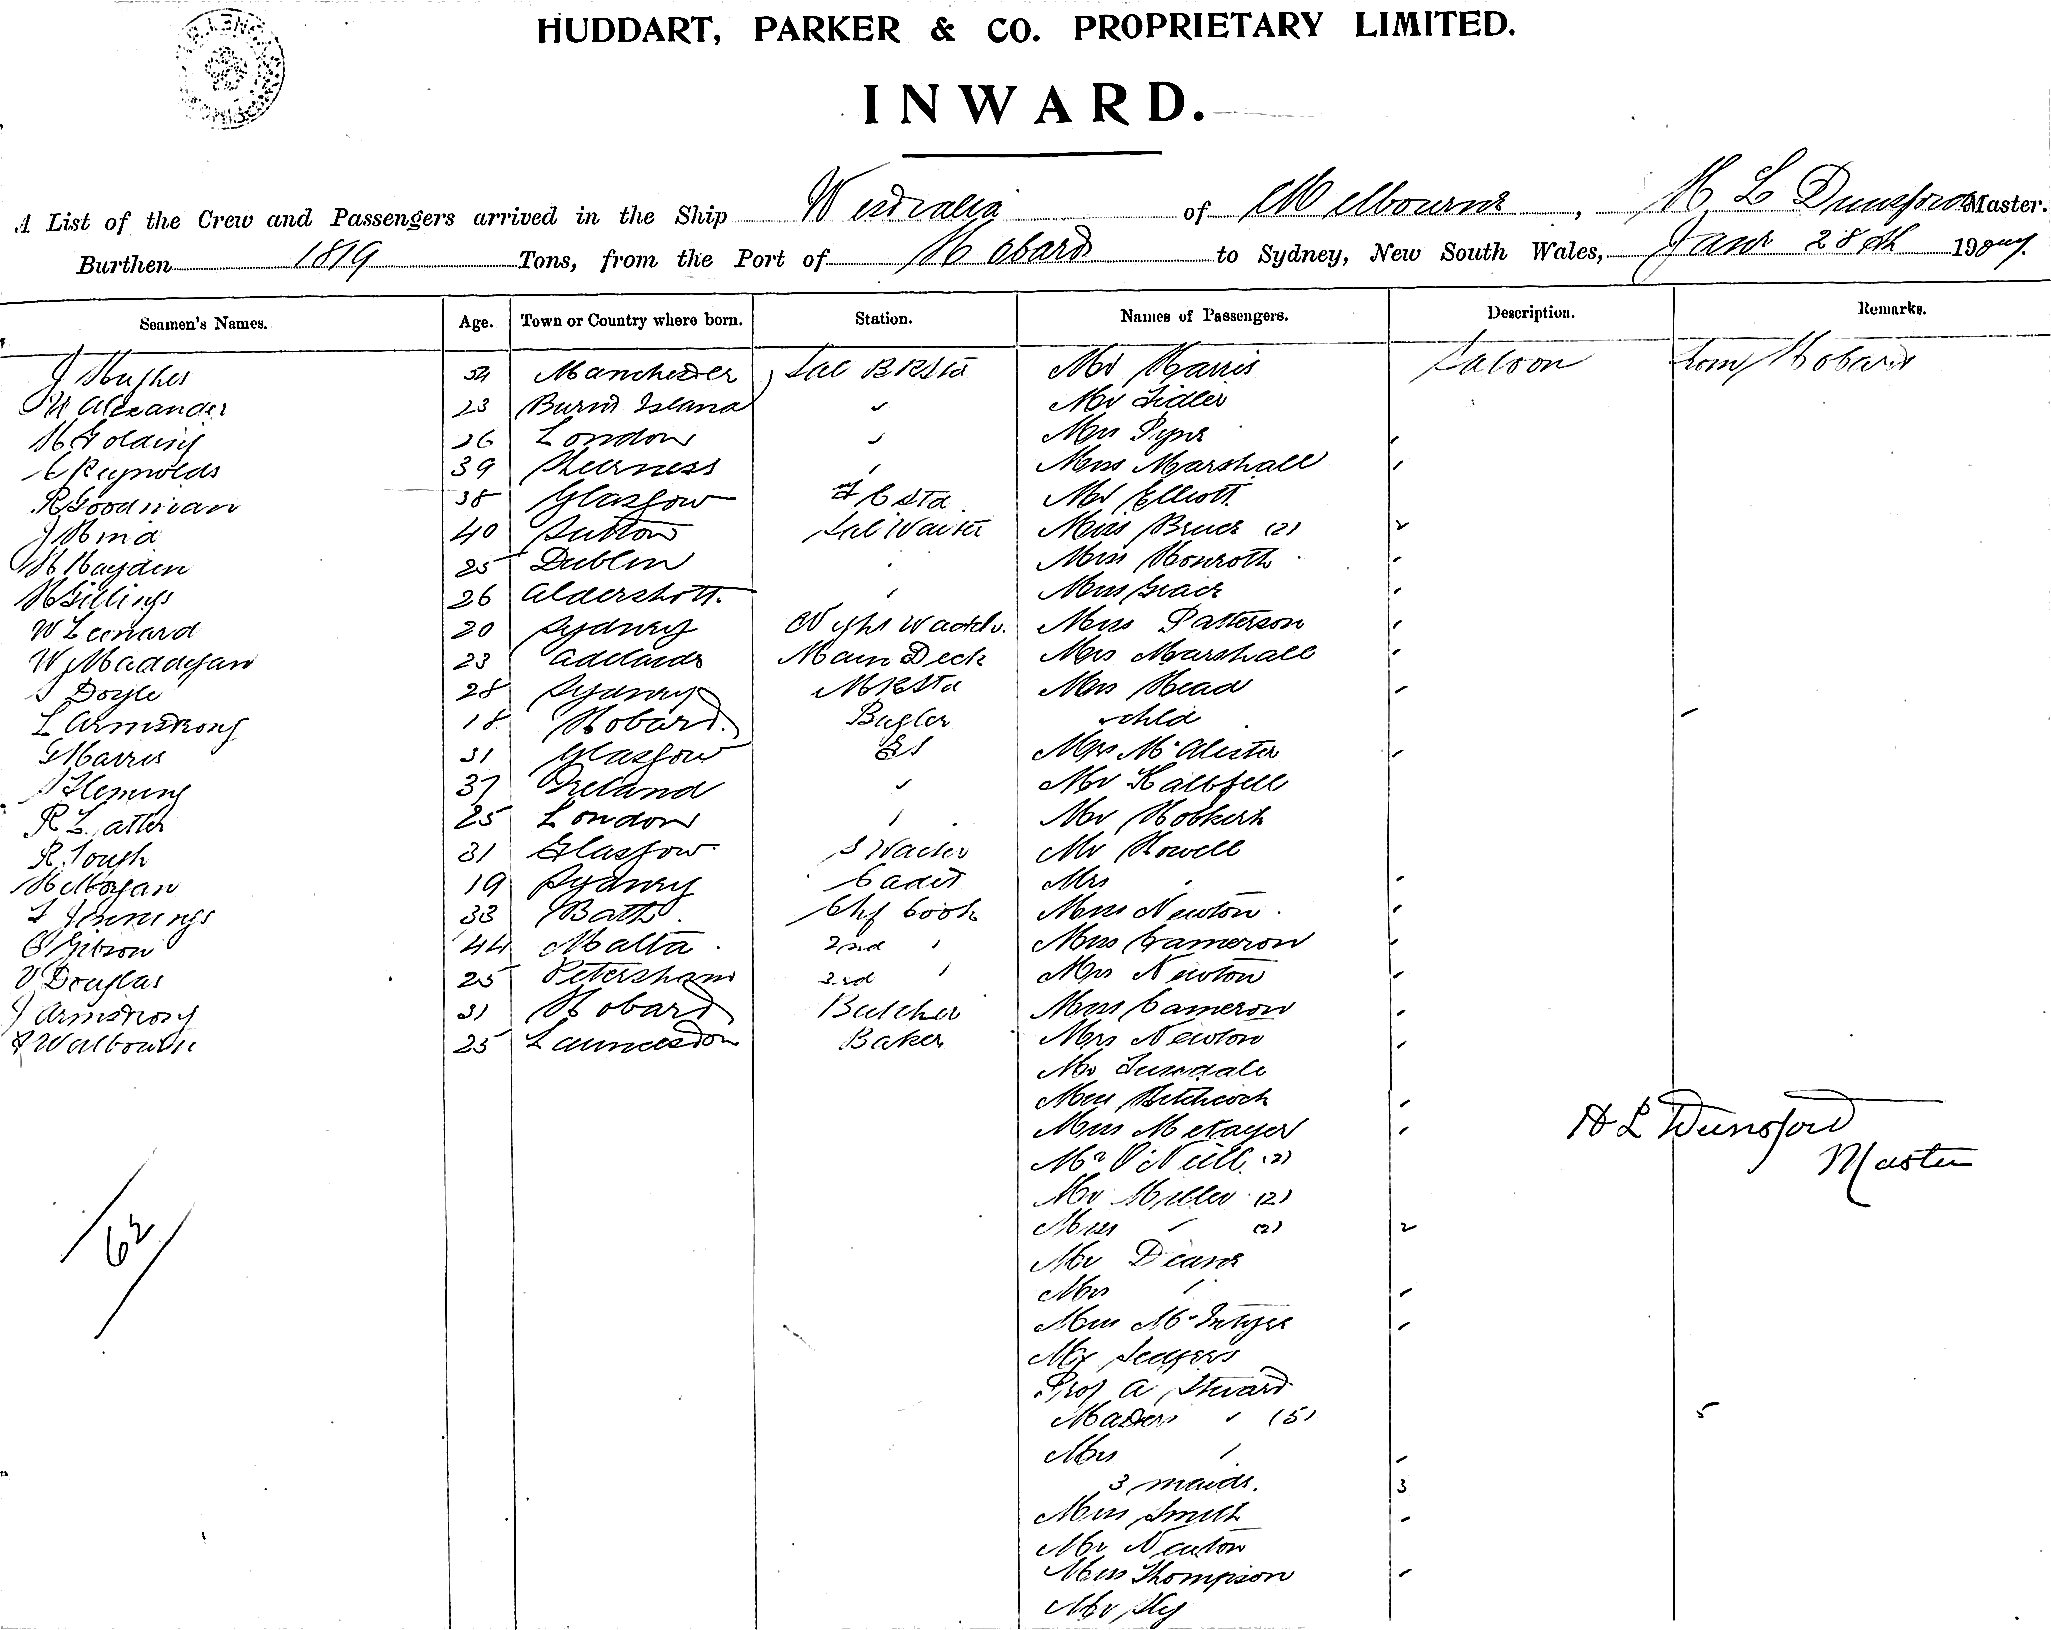 HUDDART, PARKER & CO. PROPRIETARY LIMITED.
INWARD.
A List of the Crew and Passengers arrived in the Ship Westralia of Melbourne, H L Dunsford Master.
Burthen 1819 Tons, from the Port of Hobart to Sydney, New South Wales, Jany 28th 190
Seamen's Names. Age. Town or Country where born. Station. Names of Passengers. Description. Remarks.
J Hughes Manchester Mr Harris Saloon from Hobart
W Alexander 23 Burnt Island " Mr Fidler
H Golding 26 London " Mrs Pyne "
Reynolds 39 Sheerness " Miss Marshall "
R Goodman 38 Glasgow Mr Elliott
J Hind 40 Sutton Sal Waiter Miss Bruce (2) 2
H Hayden 25 Dublin " Miss Honroth "
H Gillings 26 Aldershott. " Miss Grace "
W Leonard 20 Sydney Night Watch. Miss Patterson "
W J Maddigan 23 Adelaide Main Deck Mrs Marshall "
Doyle 28 Sydney Mrs Head "
L Armstrong 18 Hobart. Bugler child "
G Harris 31 Glasgow Mrs McAlister "
Fleming 37 Ireland " Mr
R L atter 25 London " Mr
R Tough 31 Glasgow S Waiter Mr Howell
19 Sydney Cadet Mrs " "
Jennings 33 Bath Chf Cook Miss Newton "
Gibson 44 Malta 2nd " Miss Cameron "
V Douglas 25 Petersham 3rd " Mrs Newton "
J Armstrong 31 Hobart Butcher Miss Cameron "
Walbourne 25 Launceston Baker Mrs Newton "
Mr
Miss Hitchcock "
Miss "
H L Dunsford
Mr O'Neill (2)
Master
Mr Miller (2)
Miss " (2) 2
62
Mr Deane
Mrs " "
Miss McIntyre "
Mr
Prof A Stuard
Masters " (5) 5
Mrs " "
3 maids. 3
Miss Smith "
Mr Newton
Miss Thompson "
Mr